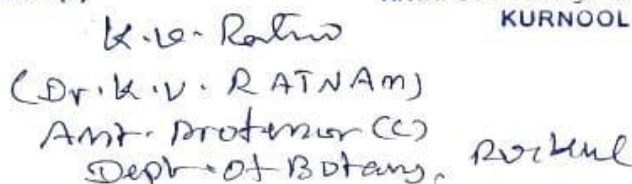 KURNOOL
K.V. Ratna
(Dr. K.V. RATNAM)
Asst. Professor (C)
Dept. of Botany,